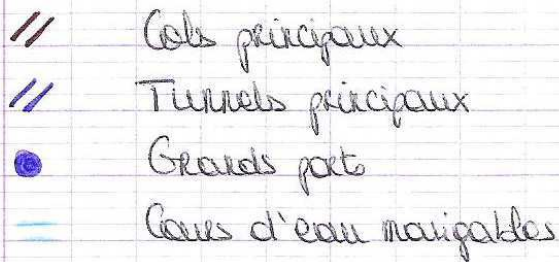 Cols principaux
Tunnels principaux
Grands ports
Cours d'eau navigables